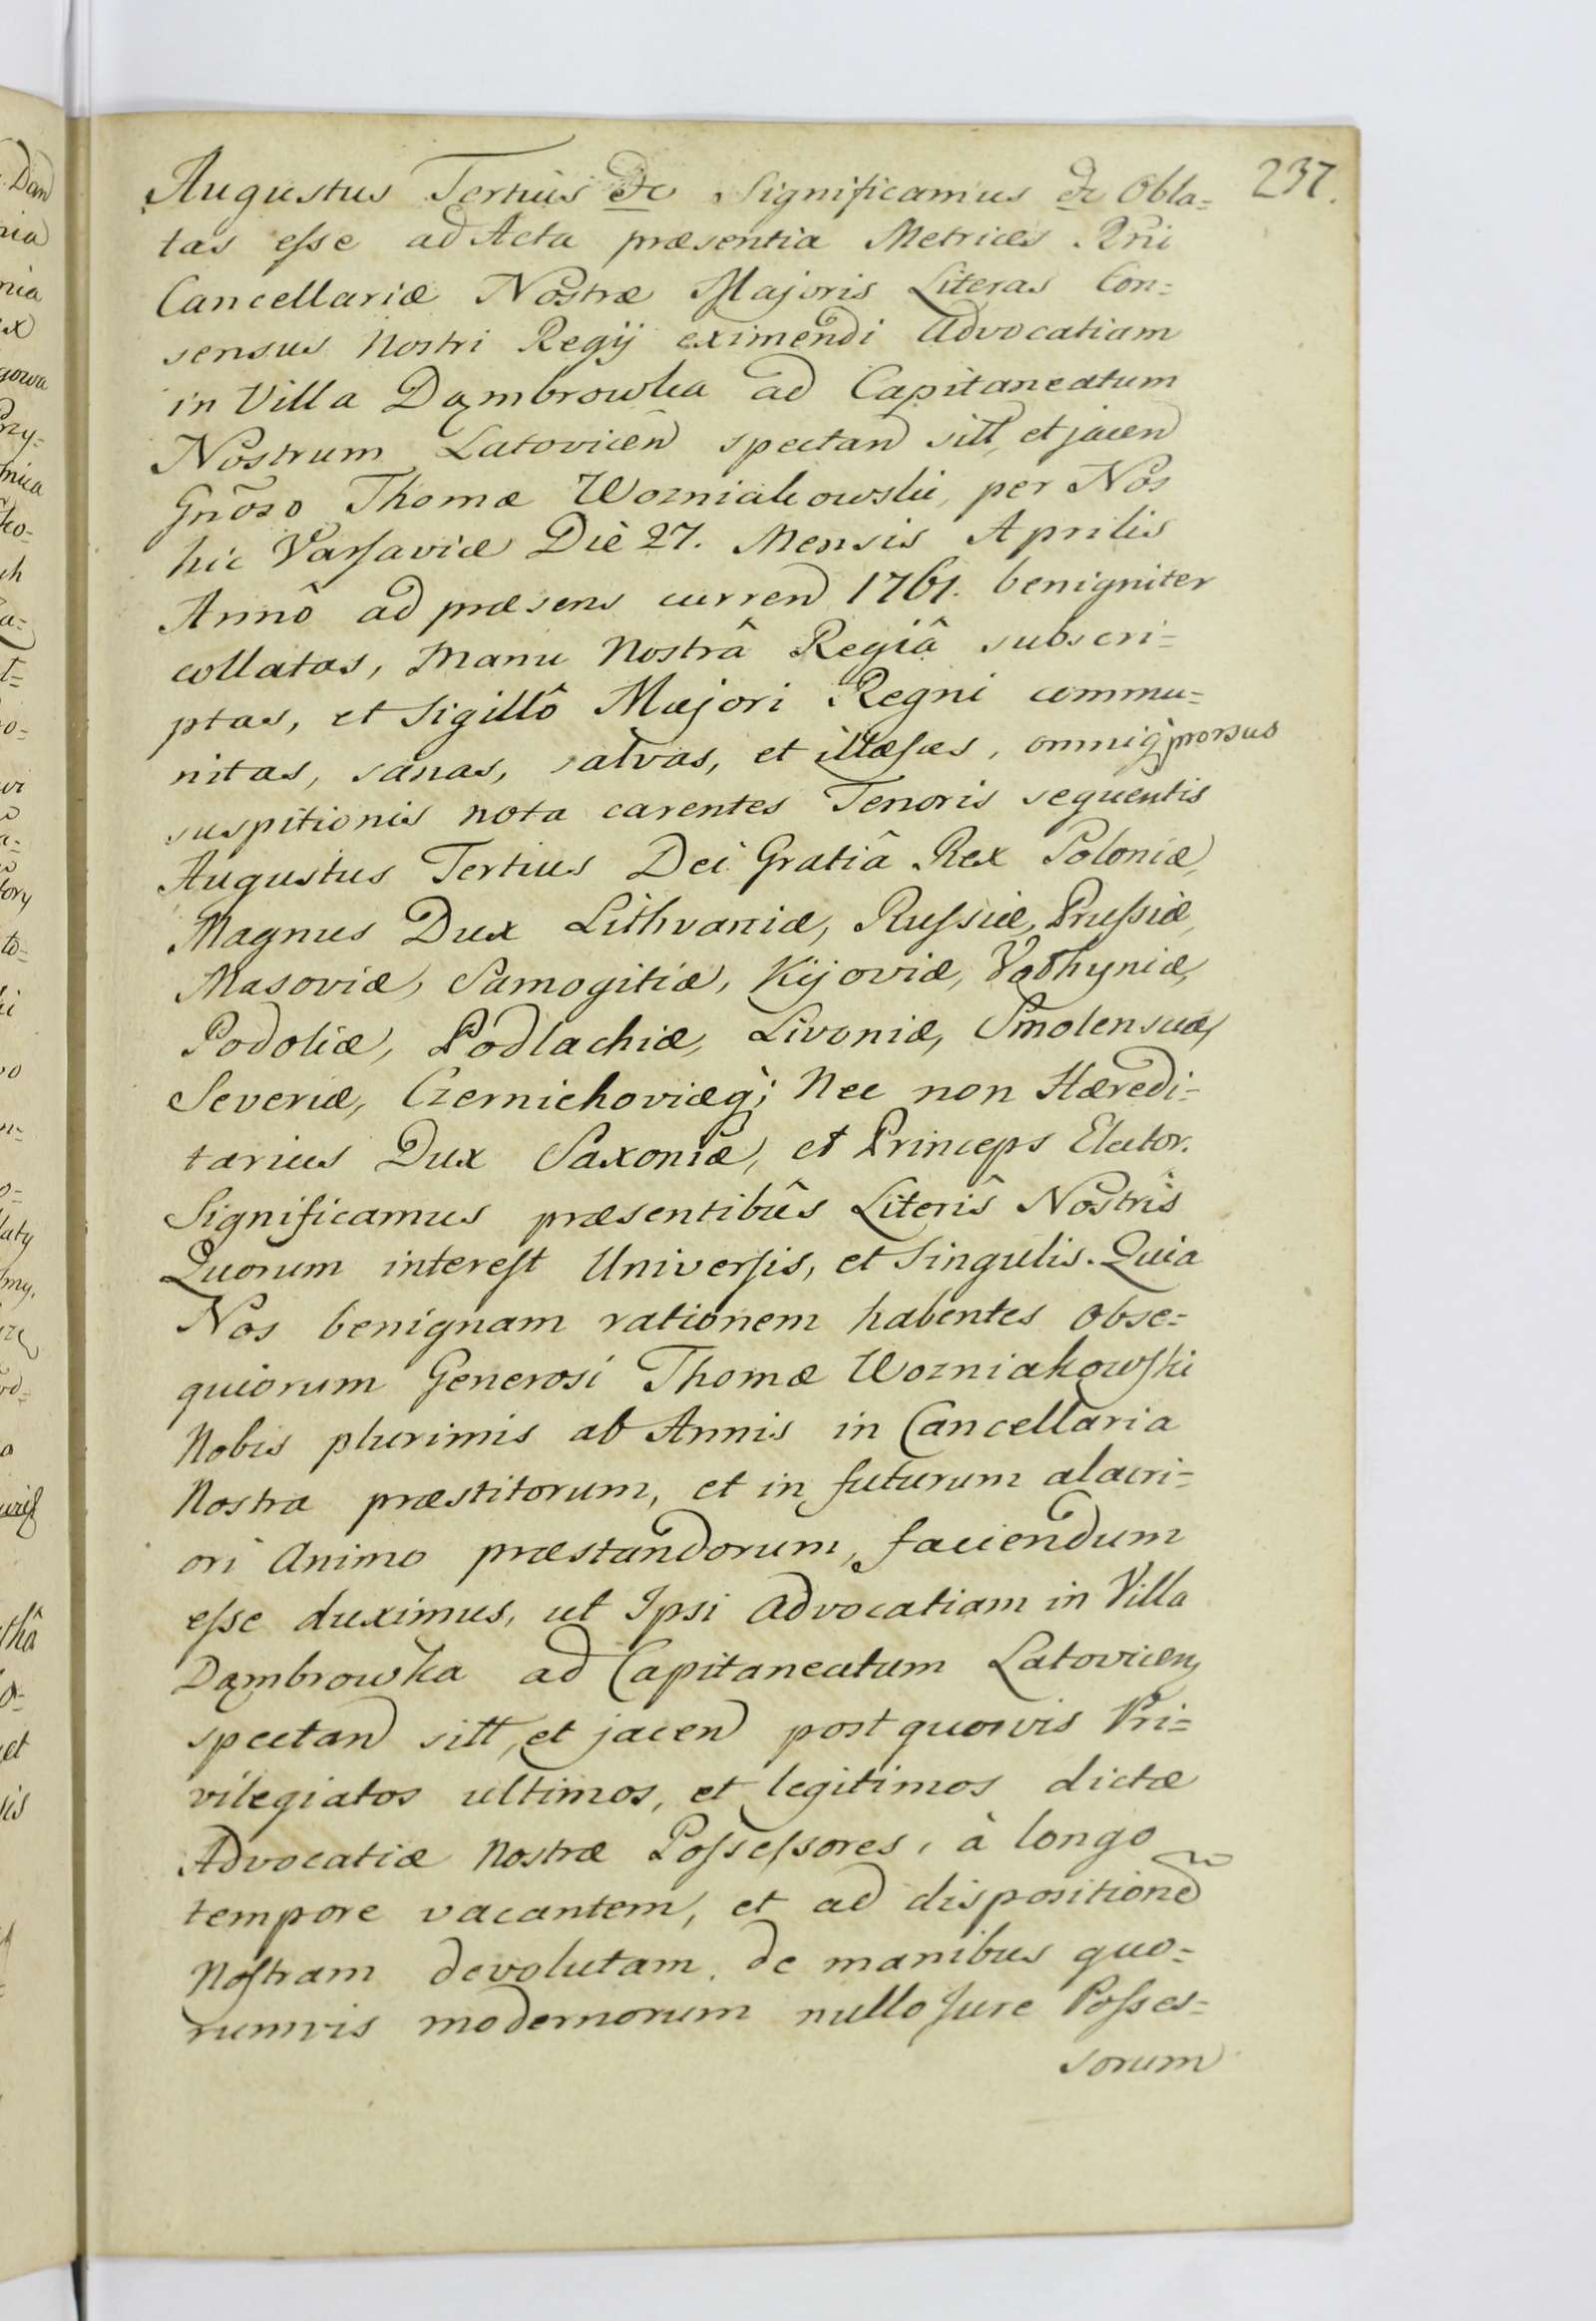 237.
Augustus Tertius &c Significamus &c Obla=
tas eſse ad Acta præsentia Metrices Rñi
Cancellariæ Nostræ Majoris Literas Con=
sensus Nostri Regij eximendi Advocatiam
in Villa Dąmbrowka ad Capitaneatum
Nostrum Latovicen̄ spectan̄ sitt, et jacen̄
Gñoso Thomæ Wozniakowski, per Nos
hic Varſaviæ Diè 27. Mensis Aprilis
Annô ad præsens curren̄ 1761. benigniter
collatas, Manu Nostrâ Regiâ subscri=
ptas, et Sigillô Majori Regni commu=
nitas, sanas, salvas, et illæſas, omniq̀ prorsus
suspitionis nota carentes Tenoris sequentis
Augustus Tertius Dei Gratiâ Rex Poloniæ,
Magnus Dux Lithvaniæ, Ruſsiæ, Pruſsiæ,
Masoviæ, Samogitiæ, Kijoviæ, Volhyniæ,
Podoliæ, Podlachiæ, Livoniæ, Smolensciæ,
Severiæ, Czernichoviæq̀; Nec non Hæredi=
tarius Dux Saxoniæ, et Princeps Elector.
Significamus præsentibûs Literîs Nostrîs
Quorum intereſt Univerſis, et Singulis. Quia
Nos benignam rationem habentes obse=
quiorum Generosi Thomæ Wozniakowſki
Nobis plurimis ab Annis in Cancellaria
Nostra præstitorum, et in futurum alacri=
ori Animo præstandorum, faciendum
eſse duximus, ut Ipsi Advocatiam in Villa
Dąmbrowka ad Capitaneatum Latovicen̄
spectan̄ sitt, et jacen̄ post quosvis Pri=
vilegiatos ultimos, et legitimos dictæ
Advocatiæ Nostræ Poſseſsores, à longo
tempore vacantem, et ad dispositionē
Noſtram devolutam, de manibus quo=
rumvis modernorum nullo Jure Poſses=
sorum